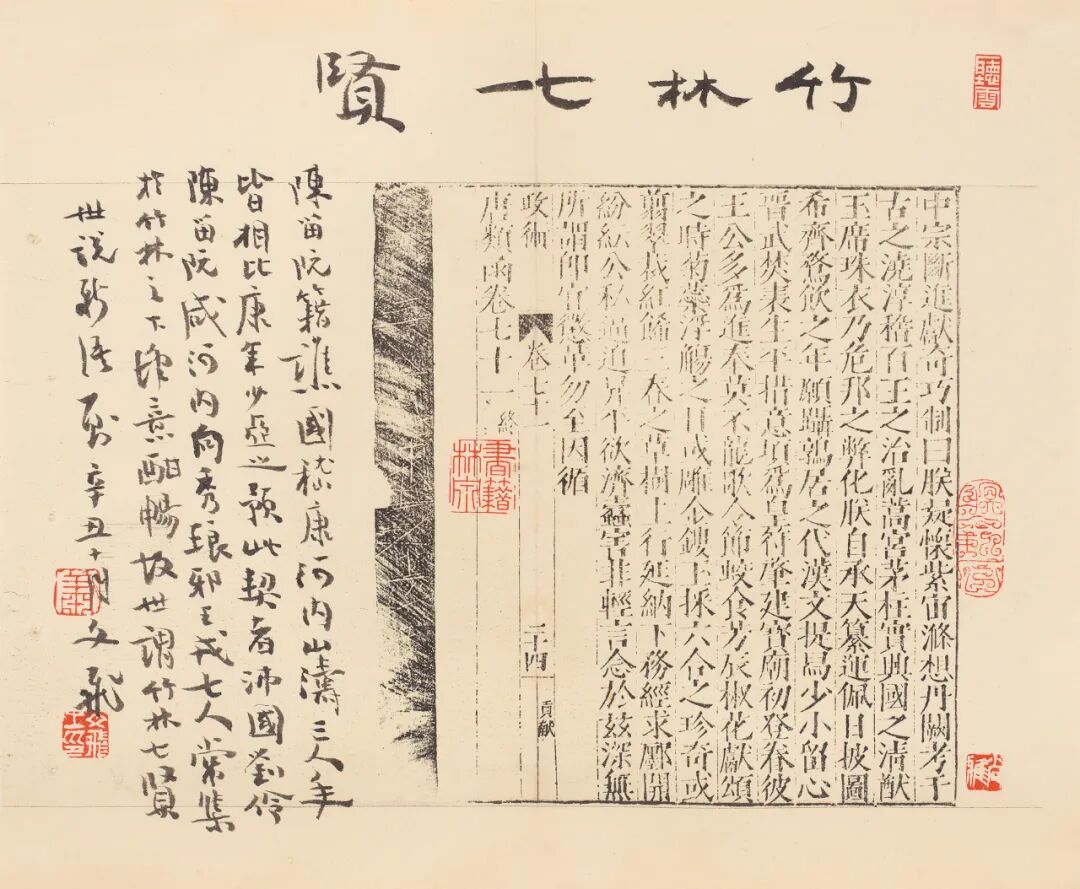 竹林七賢
聽雲
中宗斷進獻奇巧制曰朕凝懷紫宙滌想丹闕考千
古之澆淳稽百王之治亂高宮茅柱實興國之清猷
玉席珠衣乃危邦之弊化朕自承天纂運佩日披圖
希齊鷇飲之年願躡鶉居之代漢文提舄少小留心
晉武焚裘生平措意頃爲皇符肇建寶廟初登眷彼
王公多爲進奉莫不龍歌令節蛟食芳辰椒花獻頌
之時菊蘂浮觴之日或雕金鏤玉採六合之珍奇或
翦翠裁紅餙三春之草樹上行延納下務經求鄽開
紛紜公私逼迫昇平欲濟蠹害非輕言念於兹深無
所謂卽宜懲革勿至因循
政術 卷七十一 二十四 貢獻
唐類函卷七十一 終
陳留阮籍譙國嵇康河內山濤三人年
皆相比康年少亞之預此契者沛國劉伶
陳留阮咸河內向秀琅邪王戎七人常集
於竹林之下肆意酣暢故世謂竹林七賢
世說新語 辛丑十月文飛